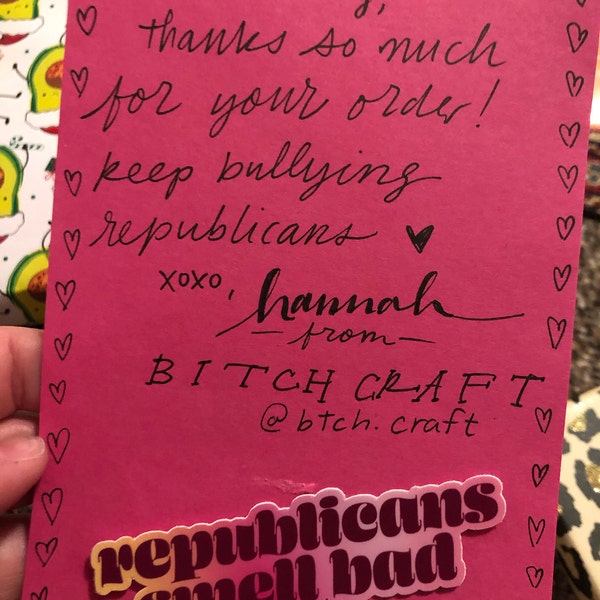 thanks so much
for your order!
keep bullying
republicans ♥
xoxo, hannah
-from-
BITCH CRAFT
@btch.craft
republicans
smell bad